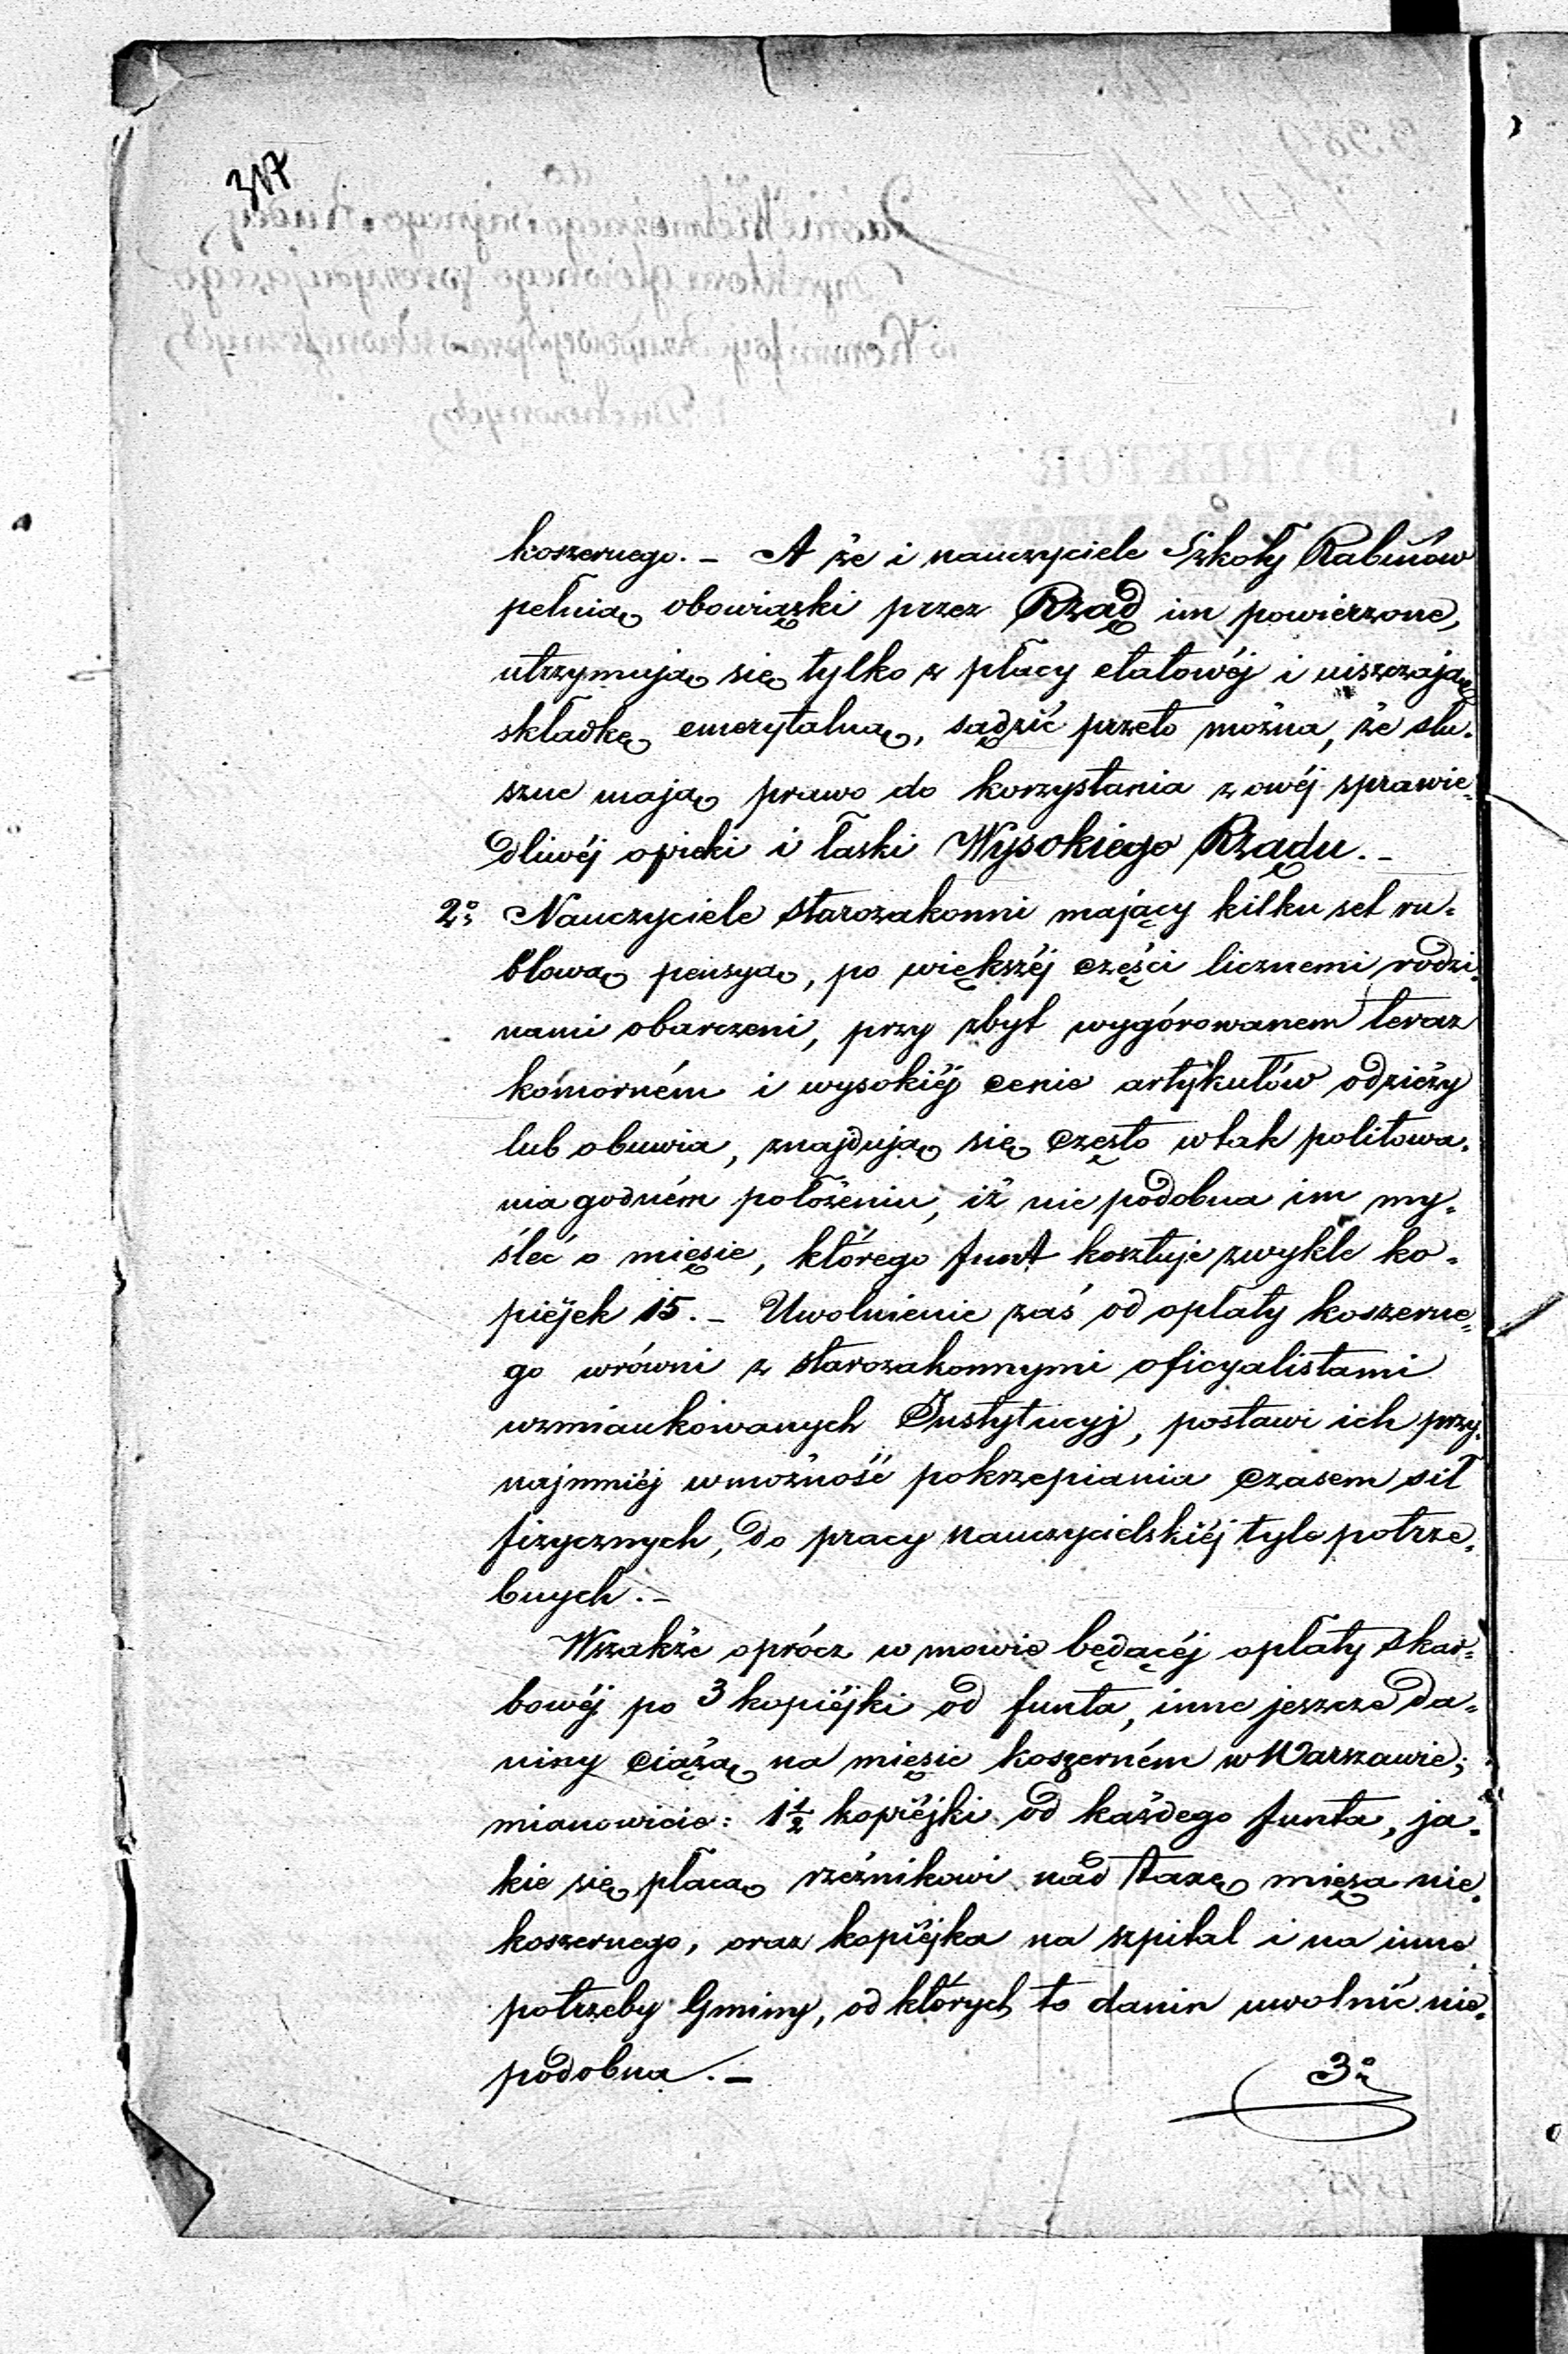 317
koszernego. – A że i nauczyciele Szkoły Rabinów
pełnią obowiązki przez Rząd im powierzone,
utrzymują się tylko z płacy etatowéj i uiszczają
składkę emerytalną, sądzić przeto można, że słu-
szne mają prawo do korzystania z owéj sprawie-
dliwéj opieki i łaski Wysokiego Rządu. –
2o Nauczyciele starozakonni mający kilku set ru-
blową pensyą, po większéj części licznemi rodzi-
nami obarczeni, przy zbyt wygórowanem teraz
komorném i wysokiéj cenie artykułów odzieży
lub obuwia, znajdują się często w tak politowa-
nia godném położeniu, iż nie podobna im my-
śleć o mięsie, którego funt kosztuje zwykle ko-
piéjek 15. – Uwolnienie zaś od opłaty koszerne-
go wrówni z starozakonnymi oficyalistami
wzmiankowanych Instytucyj, postawi ich przy-
najmniéj w możność pokrzepiania czasem sił
fizycznych, do pracy nauczycielskiéj tyle potrze-
bnych. –
Wszakże oprócz w mowie będącéj opłaty skar-
bowéj po 3 kopiéjki od funta, inne jeszcze da-
niny ciążą na mięsie koszerném w Warszawie;
mianowicie: 1½ kopiéjki od każdego funta, ja-
kie się płacą rzeźnikowi nad taxę mięsa nie-
koszernego, oraz kopiéjka na szpital i na inne
potrzeby Gminy, od których to danin uwolnić nie-
podobna. –
3o